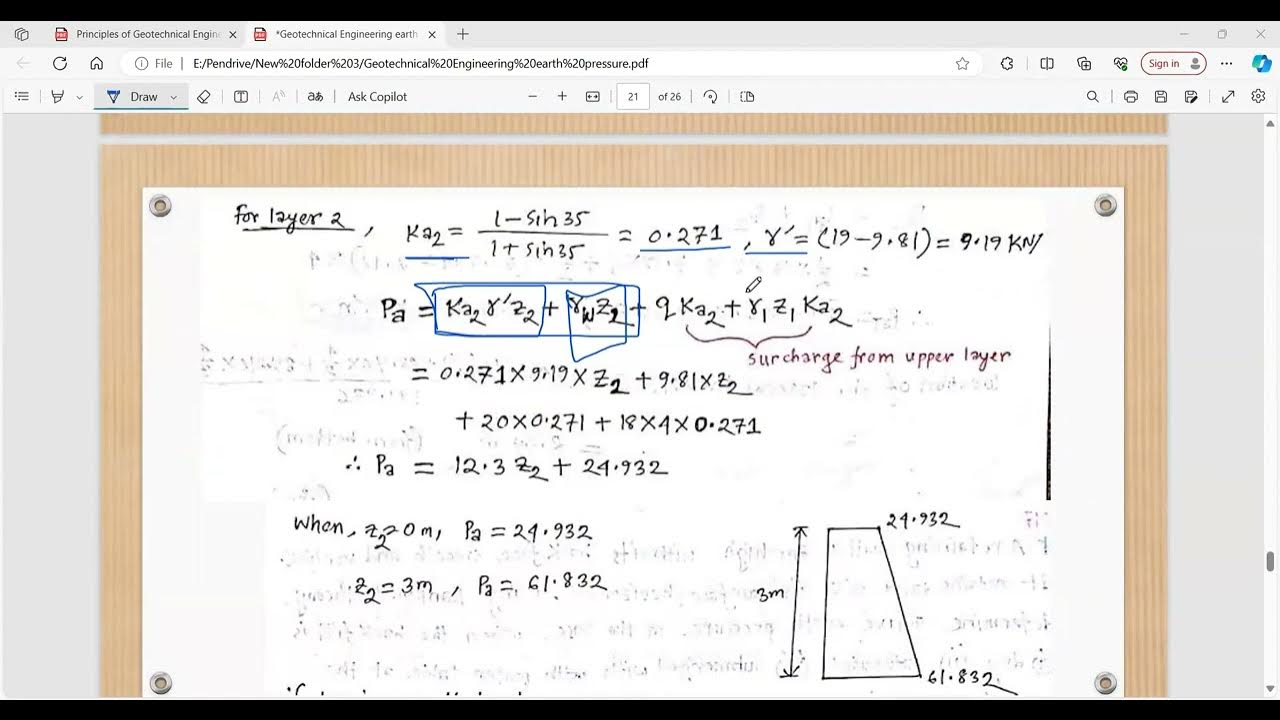 Principles of Geotechnical Engine
*Geotechnical Engineering earth
File
E:/Pendrive/New%20folder%203/Geotechnical%20Engineering%20earth%20pressure.pdf
Sign in
Draw
Ask Copilot
21 of 26
For layer 2, Ka2 = (1 - sin 35)/(1 + sin 35) = 0.271, γ' = (19-9.81) = 9.19 KN/
Pa = Ka2 γ' z2 + γw z2 + q Ka2 + γ1 z1 Ka2
surcharge from upper layer
= 0.271 × 9.19 × z2 + 9.81 × z2
+ 20 × 0.271 + 18 × 4 × 0.271
∴ Pa = 12.3 z2 + 24.932
When, z2 = 0 m, Pa = 24.932
z2 = 3m, Pa = 61.832
24.932
3m
61.832